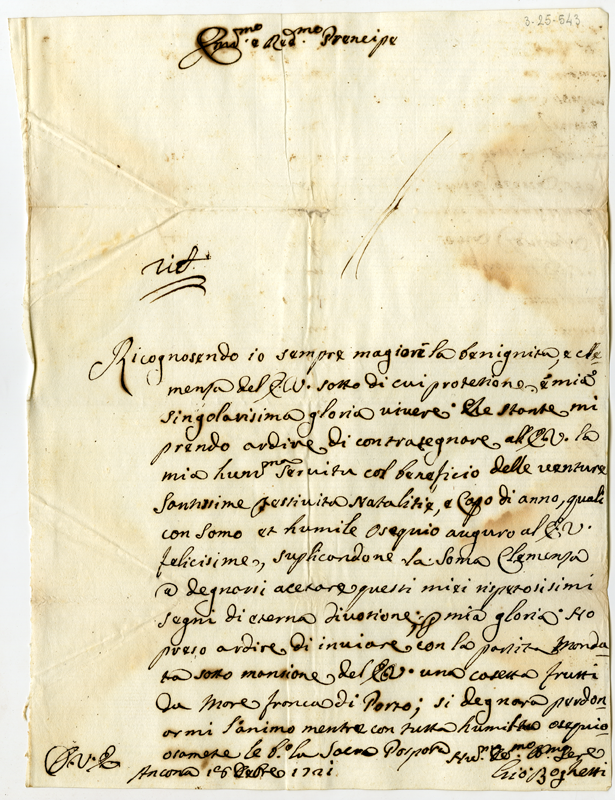 3-25-543
Em.mo e Red.mo Prencipe
rid.
Ricognosendo io sempre magiore la benignita, e cle
mensa del E.V. sotto di cui protetione, è mia
singolarisima gloria vivere. Che stante mi
prendo ardire, di contrasegnare al E.V. la
mia hum.ma servitu col beneficio delle venture
santissime festivita Natalitie, e Capo di anno, quali
con somo et humile osequio auguro al E.V.
felicisime, suplicandone la soma Clemensa
a degnarsi acetare questi miei rispetosisimi
segni di eterna divotione; p mia gloria. Ho
preso ardire, di inviare, con la partita Monda
ta sotto mansione del E.V. una casetta frutti
da More franca di Porto; si degnara perdon
armi l'animo mentre con tutta humilta osequio
osamete le b.o la Sacra Porpora
E.V.E
Ancona 1721
Gio Boghetti